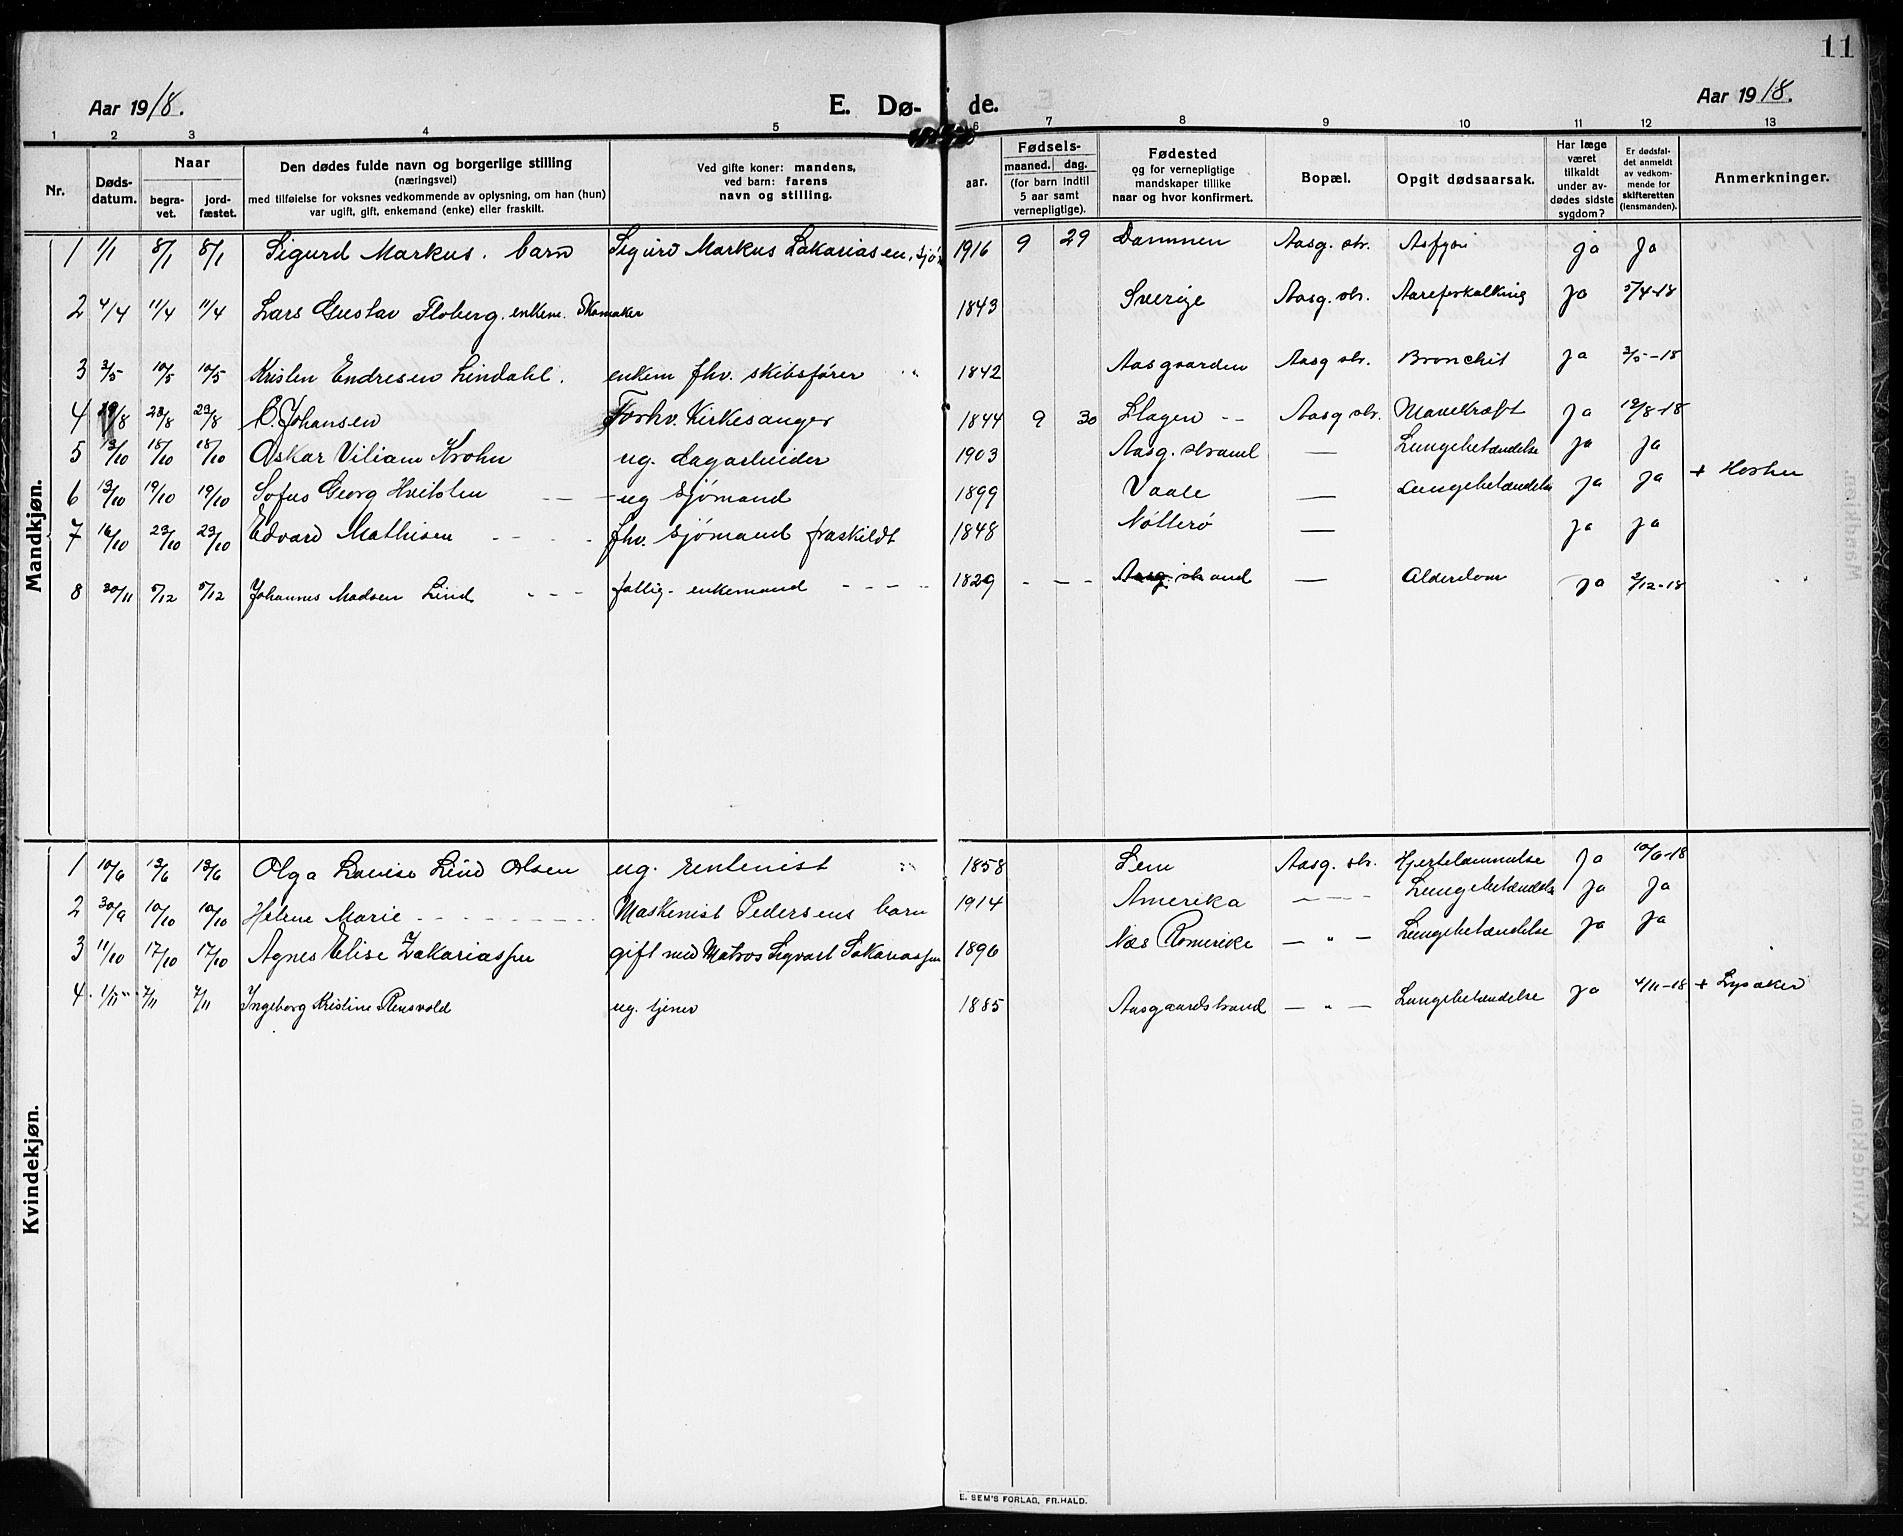 11
Aar 1918. E. Dø- de. Aar 1918.
1 2 3 4 5 6 7 8 9 10 11 12 13
Nr. Døds-datum. Naar begra-vet. jord-fæstet. Den dødes fulde navn og borgerlige stilling (næringsvei) med tilføielse for voksnes vedkommende av oplysning, om han (hun) var ugift, gift, enkemand (enke) eller fraskilt. Ved gifte koner: mandens, ved barn: farens navn og stilling. aar. Fødsels- maaned. dag. (for barn indtil 5 aar samt vernepligtige). Fødested og for vernepligtige mandskaper tillike naar og hvor konfirmert. Bopæl. Opgit dødsaarsak. Har læge været tilkaldt under av-dødes sidste sygdom? Er dødsfal-det anmeldt av vedkom-mende for skifteretten (lensmanden). Anmerkninger.
Mandkjøn.
1 1/1 8/1 8/1 Sigurd Markus. barn Sigurd Markus Sakariasen, sjø 1916 9 29 Dammen Aasg. str. Asfyxi ja Ja
2 4/4 11/4 11/4 Lars Gustav Floberg. enkem. Skomaker 1843 Sverige Aasg. str. Aareforkalkning Ja 5/4-18
3 3/5 10/5 10/5 Kristen Endresen Lindahl. enkem fhv. skibsfører 1842 Aasgaarden Aasg str. Bronchit Ja 3/5-18
4 23/8 23/8 Johansen Forhv. Kirkesanger 1844 9 30 Slagen -- Aasg str. Mavekræft Ja 19/8-18
5 13/10 18/10 18/10 Oskar Viliam Krohn ug. dagarbeider 1903 Aasg. strand — Lungebetændelse Ja Ja
6 13/10 19/10 19/10 Sofus Georg Hvitsten -- ug sjømand 1899 Vaale — Lungebetændelse Ja Ja + Horten
7 16/10 23/10 23/10 Edvard Mathisen ---- fhv. sjømand fraskildt 1848 Nøtterø — Ja Ja
8 30/11 5/12 5/12 Johannes Madsen Lind --- fattig- enkemand ---- 1829 --- Aasg. strand — Alderdom Ja 2/12-18
Kvindekjøn.
1 10/6 13/6 13/6 Olga Lovise Lind Olsen ug. rentenist 1858 Sem Aasg. str. Hjertelammelse Ja 10/6-18
2 30/9 10/10 10/10 Helene Marie -------- Maskenist Pedersens barn 1914 Amerika ---- Lungebetændelse Ja Ja
3 11/10 17/10 17/10 Agnes Elise Zakariassen gift med Matros Sigvart Sakariassen 1896 Næs Romerike — " — Lungebetændelse Ja Ja
4 1/11 7/11 7/11 Ingeborg Kristine Rensvold ug. tjener 1885 Aasgaardstrand — " — Lungebetændelse Ja 4/11-18 + Lysaker
E. SEM'S FORLAG, FR.HALD.